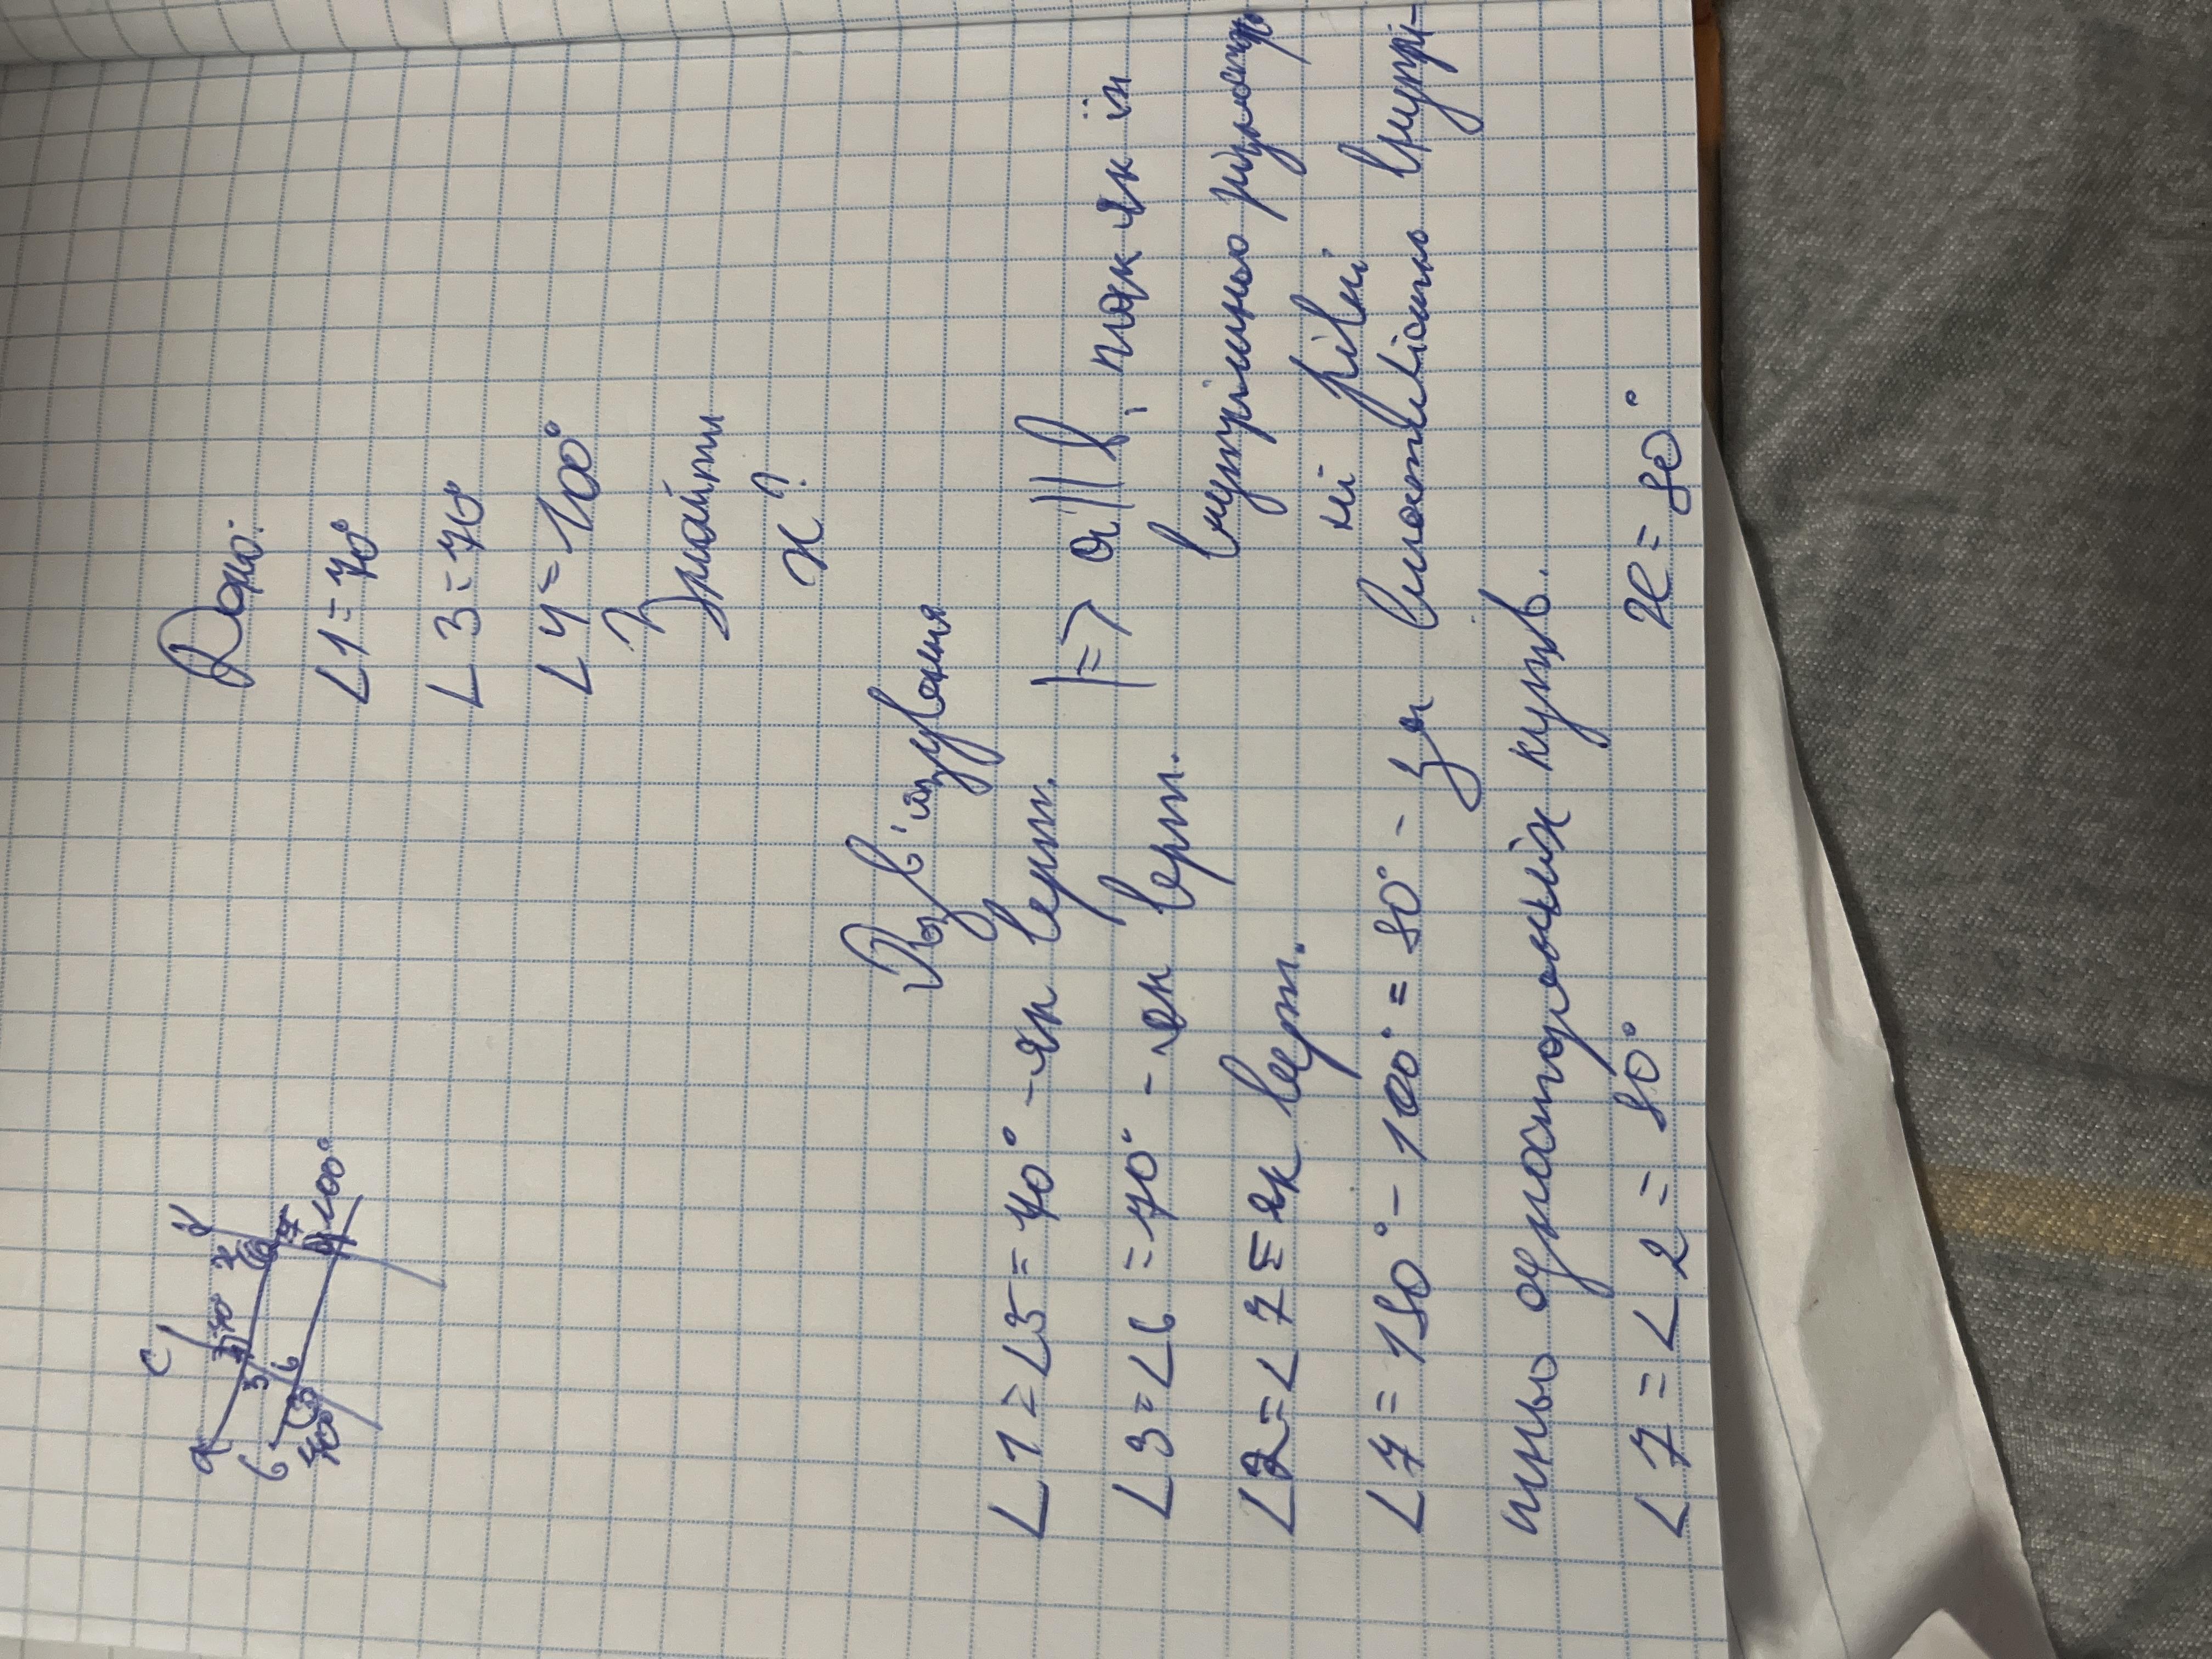 Дано:
∠1=70°
∠3=70°
∠4=100°
Знайти
x?
c d
a 1 70° 2
3 7
b 6 4 100°
70° 5
Розв'язування
∠1=∠5=70° - як верт.
∠3=∠6=70° - як верт.
|=> a||b, так як їх
внутрішньо різносторон
ні рівні
∠2=∠7 = як верт.
∠7=180°-100°=80° - за властивістю внутрі-
шньо односторонніх кутів.
∠7=∠2=80° x=80°